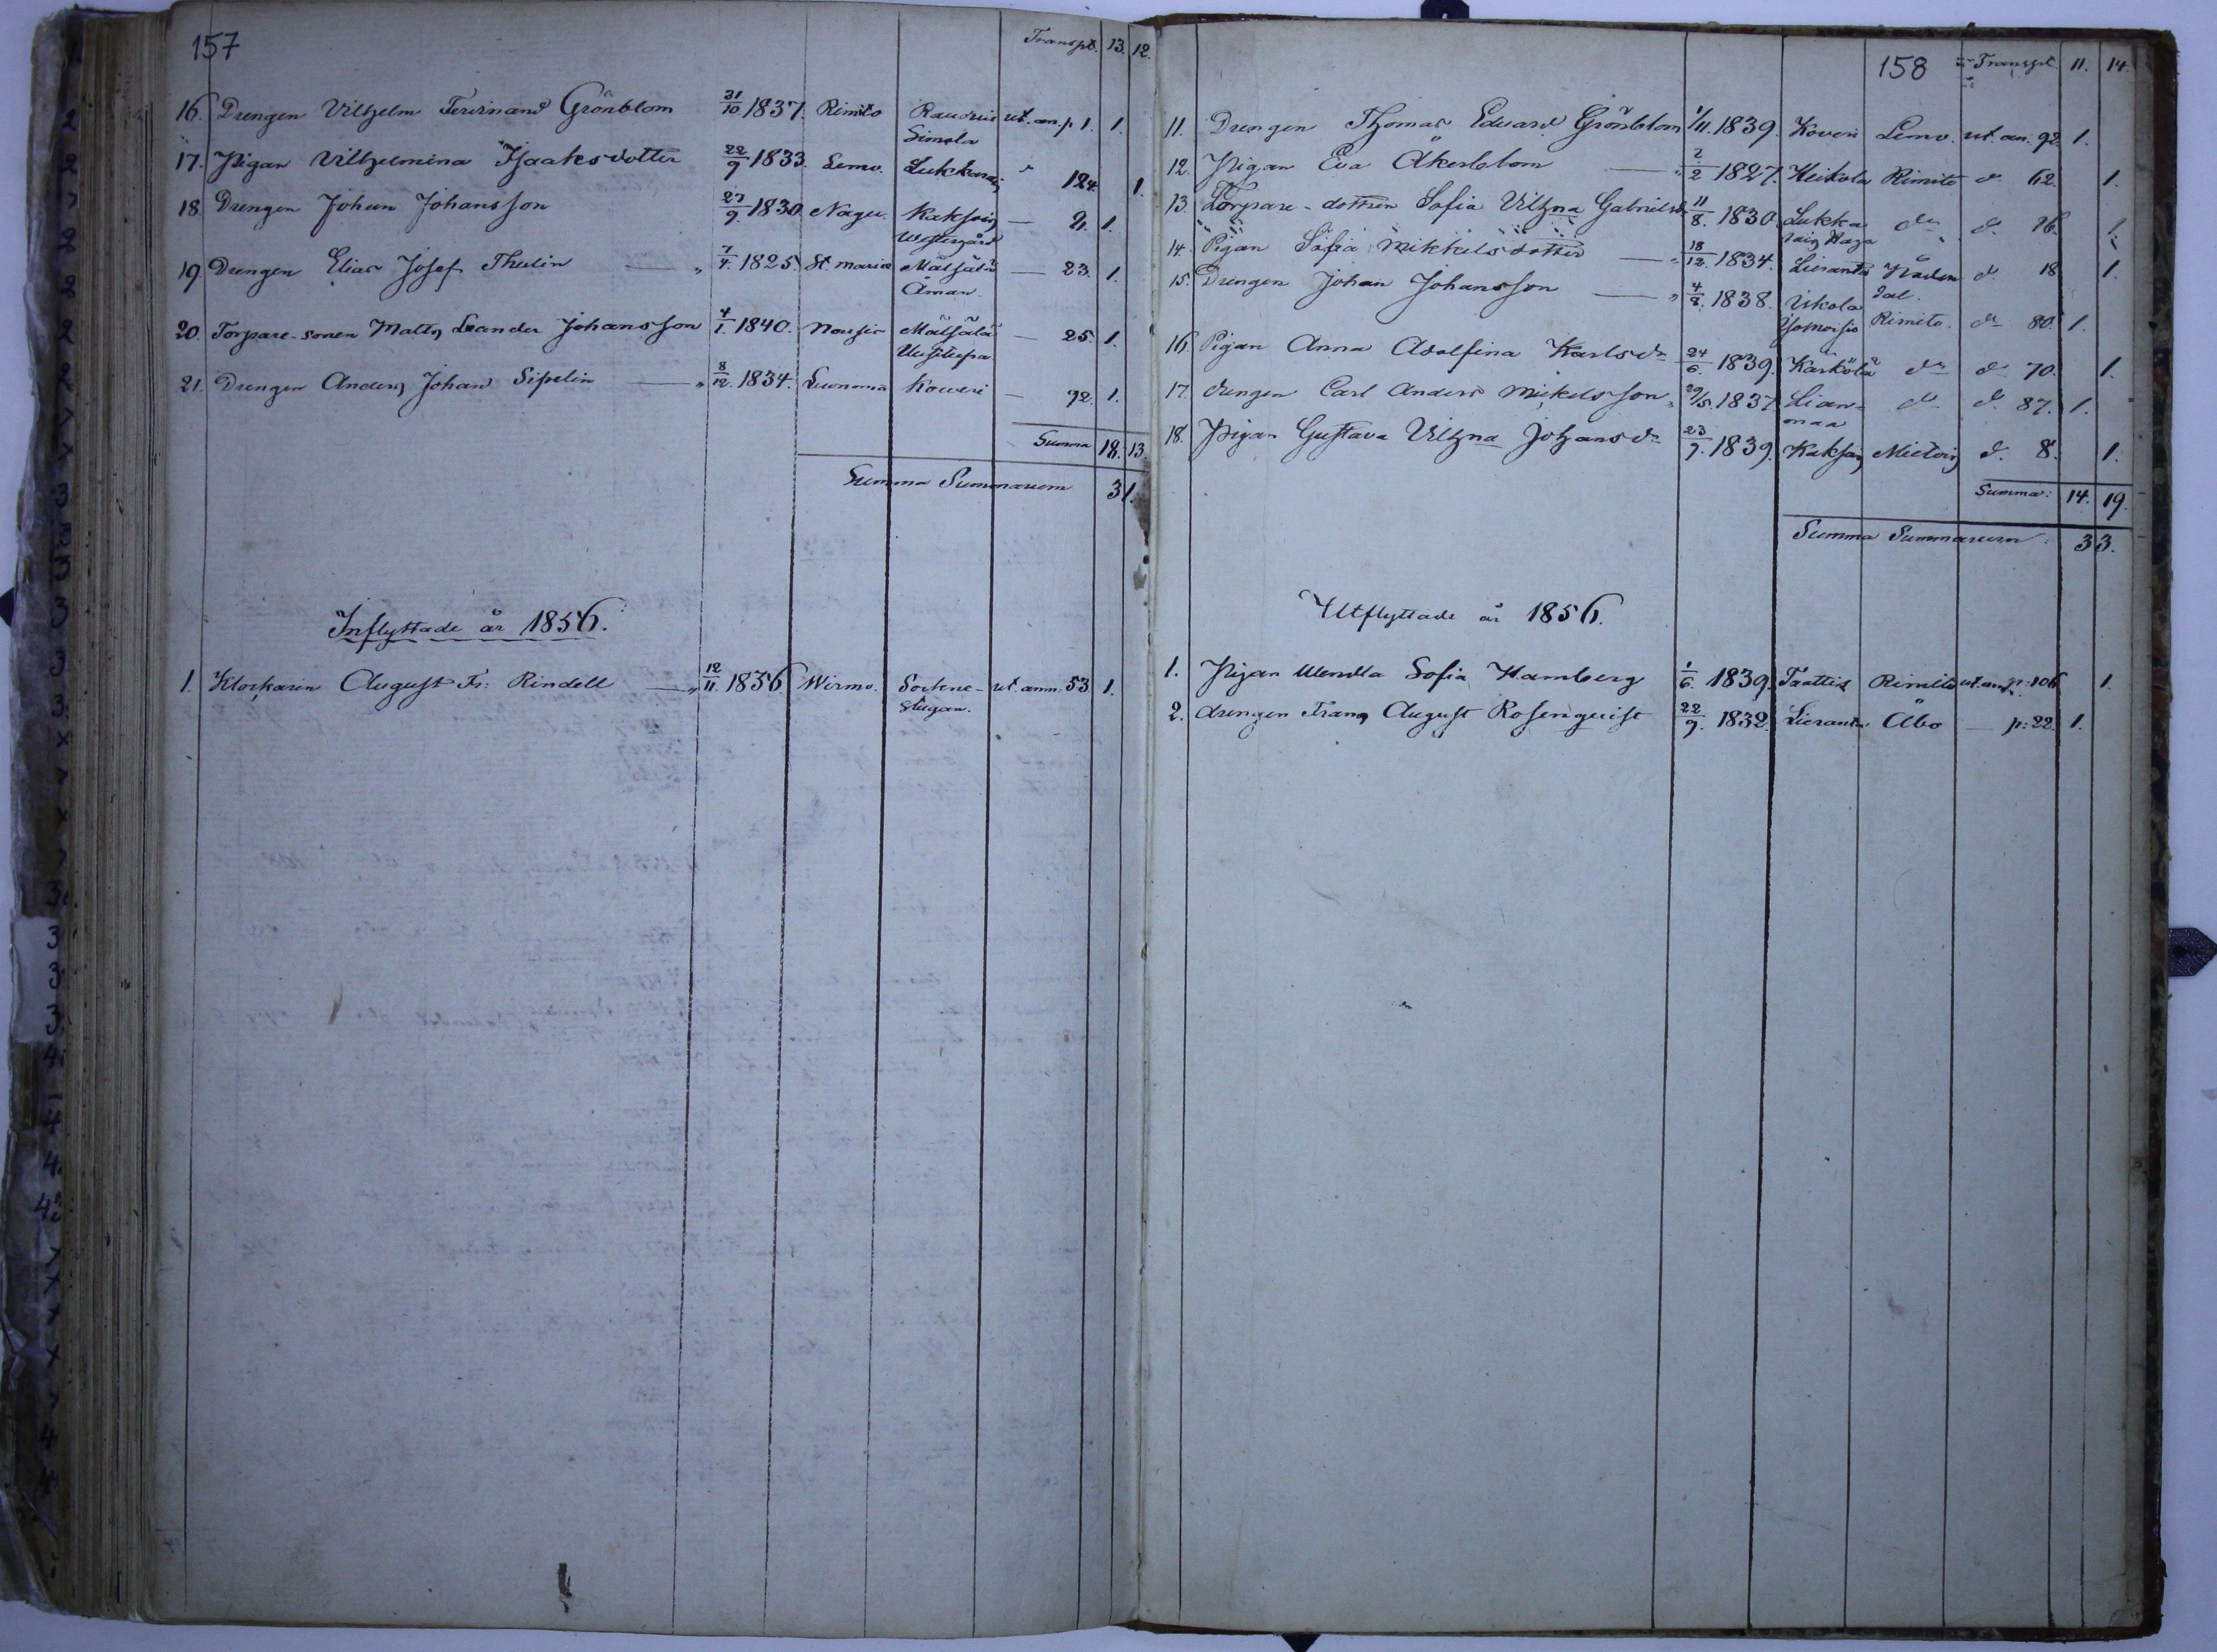 157
Transpt. 13. 12.
16. Drengen Vilhelm Ferdinand Grönblom 21/10 1837. Rimito ut. an. p. 1. 1.
Simola
17. Pigan Vilhelmina Isaaksdotter 22/9 1833. Lemo. 124. 1.
18. Drengen Johan Johansson 27/9. 1830. Nagu. Kaksois — 2. 1.
Westergård
19. Drengen Elias Josef Thelin — " 7/4. 1825. St. Maria Mälsälä — 23. 1.
Åman
20. Torpare-sonen Matts Leander Johansson 4/1. 1840. Nousis Mälsälä — 25. 1.
Uusitupa
21. Drengen Anders Johan Sipelin — " 8/12. 1834. Koweri — 92. 1.
Summa 18. 13.
Summa Summarum 31.
Inflyttade år 1856.
1. Klockaren August Fr: Rindell — " 12/11. 1836 Wirmo. Sockne- ut. anm. 53. 1.
stugan.
158
Transpt. 11. 14.
11. Drengen Thomas Edvard Grönblom 1/11. 1839. Koveri Lemo. ut. an. 92. 1.
12. Pigan Eva Åkerblom — " 2/2 1827. Heikola Rimito do 62. 1.
13. Torpare-dottren Sofia Vilhna Gabrielsdr 11/8. 1830. Lukka do do 76. 1.
rais Haga
14. Pigan Sofia Mikkelsdotter — " 18/12. 1834. Lieranta Nåden do 18 1.
dal.
15. Drengen Johan Johansson — " 4/8. 1838. Ukola Rimito. do 80. 1.
16. Pigan Anna Adolfina Karlsdr 24/6. 1839. Karkölä do do 70. 1.
17. drengen Carl Anders Mickelsson " 29/5. 1837. Lian- do do 87. 1.
maa
18. Pigan Gustava Vilhna Johansdr 23/9. 1839. Kaksois Mietois do 8. 1.
Summa: 14. 19.
Summa Summarum: 33.
Utflyttade år 1856.
1. Pigan Wendla Sofia Hamberg 1/6. 1839. Taattis Rimito ut. an. p: 106 1.
2. drengen Frans August Rosenqvist 22/9. 1832. Lieranta Åbo — p: 22 1.